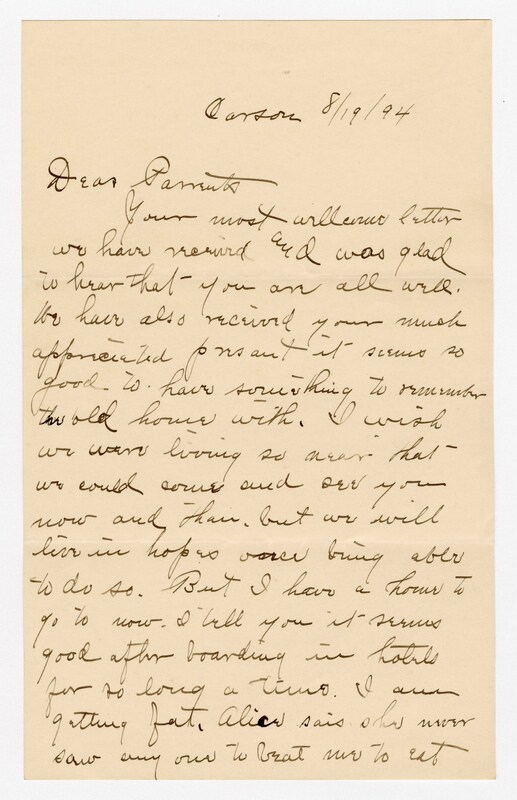 Carson 8/19/94
Dear Parrents
Your most wellcome letter
we have received and was glad
to hear that you are all well.
We have also received your much
appreciated presant it seems so
good to have something to remember
the old home with. I wish
we were living so near that
we could come and see you
now and than. but we will
live in hopes once being able
to do so. But I have a home to
go to now. I tell you it seems
good after boarding in hotels
for so long a time. I am
getting fat. Alice sais she never
saw any one to beat me to eat